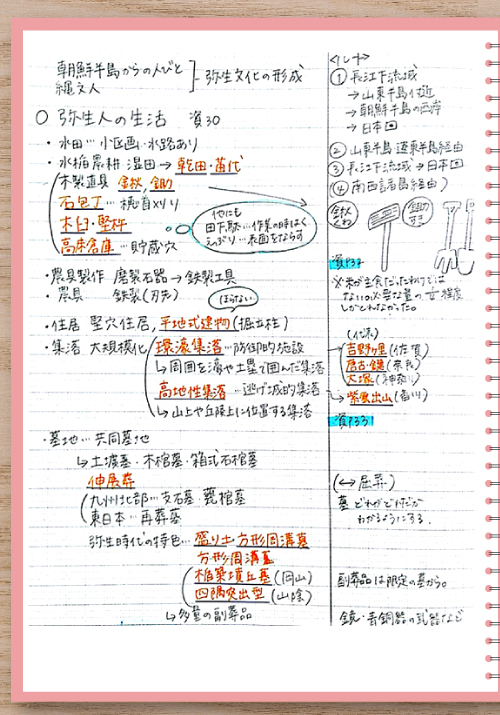 朝鮮半島からの人びと
縄文人
弥生文化の形成
○ 弥生人の生活 資30
・水田…小区画・水路あり
・水稲農耕 湿田→乾田・苗代
木製農具 鍬, 鋤
石包丁…穂首刈り
木臼・竪杵
高床倉庫…貯蔵穴
他にも
田下駄…作業の時はく
えぶり…表面をならす
・農具製作 磨製石器→鉄製工具
・農具 鉄製(刃先)
ほらない
・住居 竪穴住居, 平地式建物(掘立柱)
・集落 大規模化 環濠集落…防御的施設
↳周囲を濠や土塁で囲んだ集落
高地性集落…逃げ城的集落
↳山上や丘陵上に位置する集落
・墓地…共同墓地
↳土壙墓・木棺墓・箱式石棺墓
伸展葬
九州北部…支石墓・甕棺墓
東日本…再葬墓
弥生時代の特色…盛り土・方形周溝墓
方形周溝墓
(岡山)
四隅突出型(山陰)
↳多量の副葬品
<ルート>
① 長江下流域
→山東半島付近
→朝鮮半島の西岸
→日本
② 山東半島 遼東半島経由
③ 長江下流域→日本
(④ 南西諸島経由)
鍬
くわ
鋤
すき
資P32
※米が主食だったわけでは
ない。必要な量の 程度
しかとれなかった。
(代表)
吉野ヶ里(佐賀)
唐古・鍵(奈良)
大塚(神奈川)
→紫雲出山(香川)
資P33
(↔屈葬)
墓 どれがだれだか
わかるようにする
副葬品は限定の墓から。
鏡・青銅器の武器など